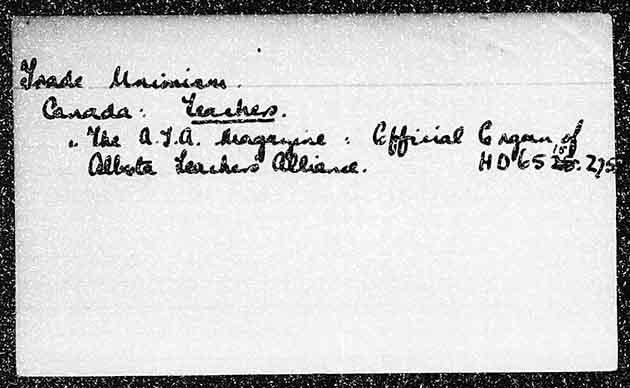 Trade Unionism.
Canada: Teachers.
The A.T.A. Magazine: Official Organ of
Alberta Teachers Alliance. HD 65